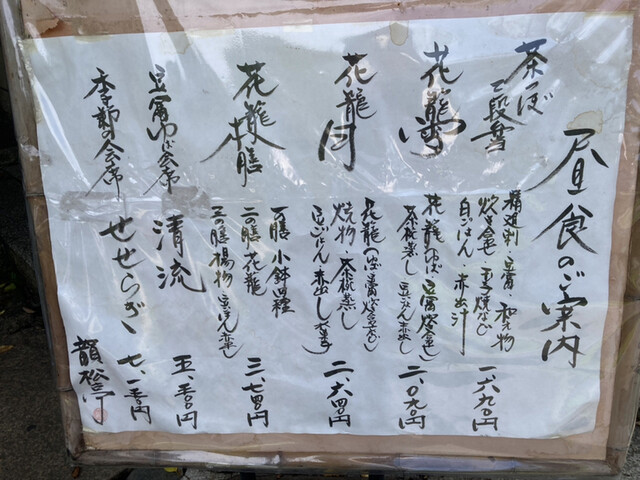 昼食のご案内
茶つぼ
三段
精進刺・豆腐・和え物
炊き合せ・玉子焼など
白ごはん・赤出汁
一、六九〇円
花籠 雪
花籠(ゆば 豆腐 炊合せ)
茶椀蒸し 豆ごはん 赤出し
二、〇九〇円
花籠 月
花籠(ゆば 豆腐 炊合せなど)
焼物 茶椀蒸し
豆ごはん 赤出し
二、六四〇円
花籠膳
一の膳 小鉢四種
二の膳 花籠
三の膳 揚物 豆ごはん 赤だし
三、七四〇円
豆富ゆば会席
清流
五、五〇〇円
季節の会席
せせらぎ
七、一五〇円